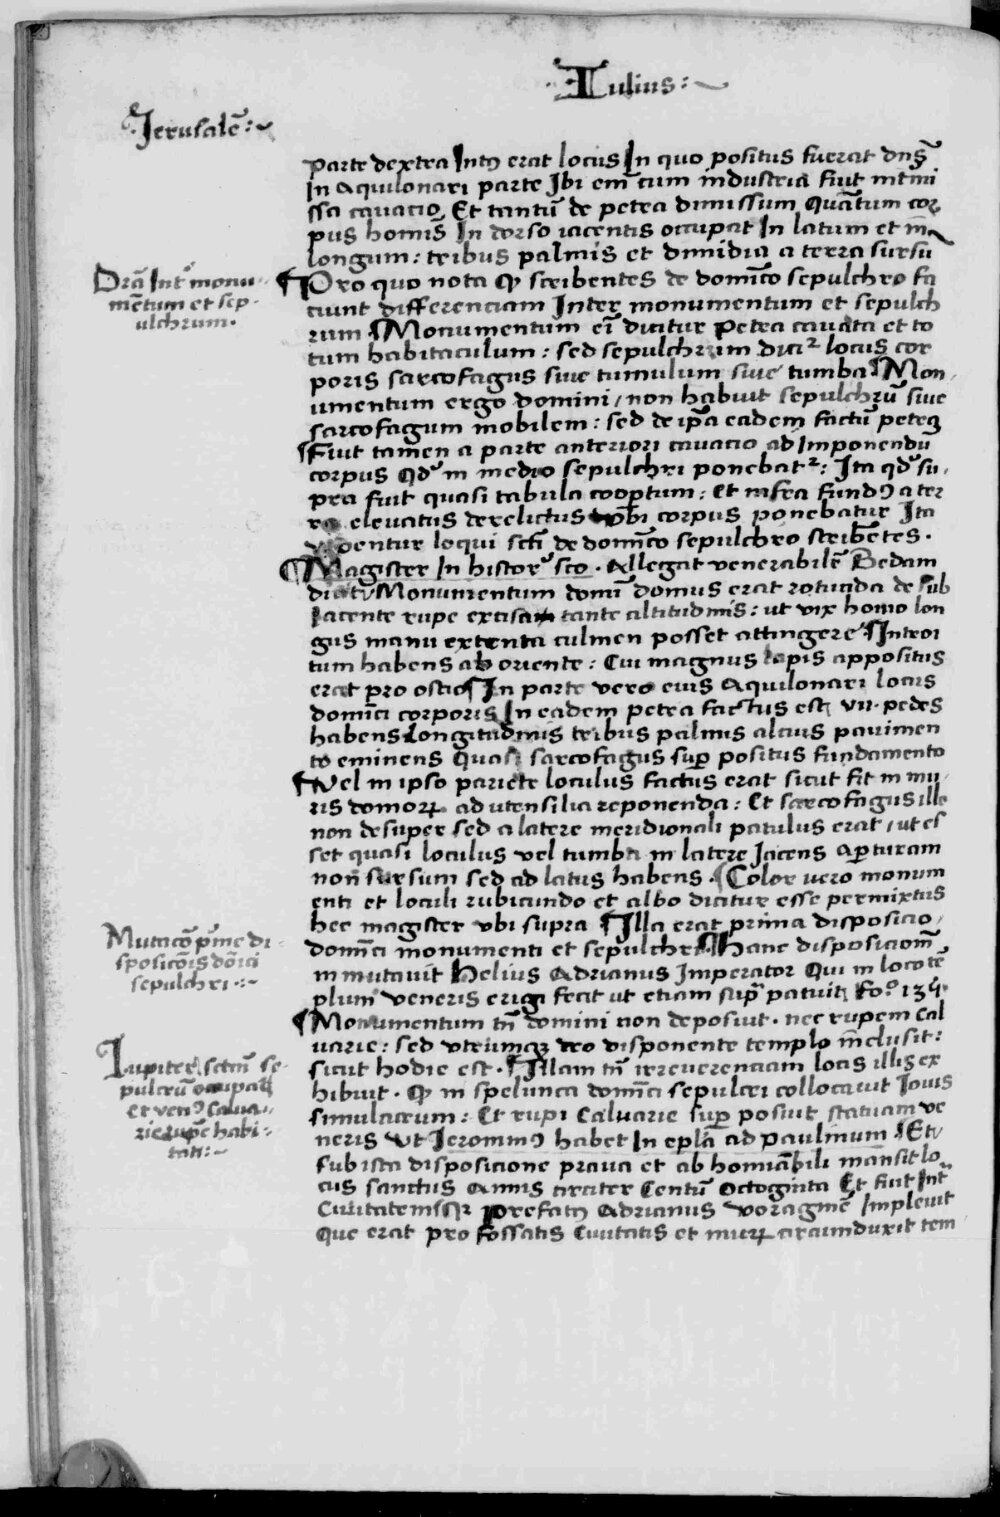 Iulius:~
Jerusalē:~
parte dextra Intꝰ erat locus In quo positus fuerat dn̄s
In aquilonari parte Ibi em̄ cum industria fuit
ssa cavacio Et tantū de petra dimissum Quātum cor
pus homīs In dorso iacentis occupat In latum et in
longum: tribus palmis et dimidia a terra sursū
Dr̄ā Int̄ monu-
mētum et sep-
ulchrum.
¶Pro quo nota ꝙ scribentes de domīco sepulchro fa
ciunt differenciam Inter monumentum et sepulch
rum ¶Monumentum eī dicitur Petra cavata et to
tum habitaculum: sed sepulchrum dicit᷑ locus cor
poris sarcofagus sive tumulum sive tumba ¶Mon
umentum ergo domini / non habuit sepulchrū sive
sarcofagum mobilem: sed de ip̄a eadem factū petra
¶Fuit tamen a parte anteriori cavacio ad Imponendū
corpus Qd̄ in medio sepulchri ponebat᷑: Ita qd̄ su
pra fuit quasi tabula coop̄tum: Et infra fundꝰ a ter
ra elevatus derelictus vbi corpus ponebatur Ita
videntur loqui scī de domīco sepulchro scribētes.
¶Magister In histor̄ sco. Allegat venerabilē Bedam
Monumentum domī domus erat rotunda de sub
Iacente rupe excisa tante altitudinis: ut vix homo lon
gus manu extenta culmen posset attingere ¶Introi
tum habens ab oriente: Cui magnus lapis appositus
erat pro ostio ¶In parte vero eius Aquilonari locus
domīci corporis In eadem petra factus est vii. pedes
habens Longitudinis tribus palmis alcius pavimen
to eminens Quasi sarcofagus sup̄ positus fundamento
¶Vel in ipso pariete loculus factus erat sicut fit in mu
ris domoꝝ ad utensilia reponenda: Et sarcofagus ille
non desuper sed a latere meridionali patulus erat / ut es
set quasi loculus vel tumba in latere Jacens Ap̄turam
non sursum sed ad latus habens. ¶Color vero monum
enti et loculi rubicundo et albo dicitur esse permixtus
hec magister vbi supra ¶Illa erat prima disposicio
Mutacō pͥme di-
sposicōis dōīci
sepulchri.:~
domīci monumenti et sepulchri ¶hanc disposicionē
inmutavit Helius Adrianus Imperator Qui in loco tē
plum veneris erigi fecit ut etiam sup̄ patuit fo.º
¶Monumentum tn̄ domini non deposuit. nec rupem Cal
varie: sed utrumqꝫ deo disponente templo inclusit:
Iupiter sctm̄ se-
pulcrū occupat
Et venꝰ Calva-
rie rupē habi-
tat:~
sicut hodie est. ¶Illam tn̄ irreverenciam locis illis ex
hibuit. ꝙ in spelunca domīci sepulcri collocavit Iovis
simulacrum: Et rupi Calvarie sup̄ posuit statuam ve
neris Ut Ieronimꝰ habet In ep̄la ad paulinum. ¶Et
sub ista disposicione prava et abhominabili mansit lo
cus sanctus Annis circiter Centū Octoginta Et fuit Int̄
Civitatem prefatꝰ Adrianus voraginē Implevit
Que erat pro fossatis Civitatis et muꝝ circumduxit tem